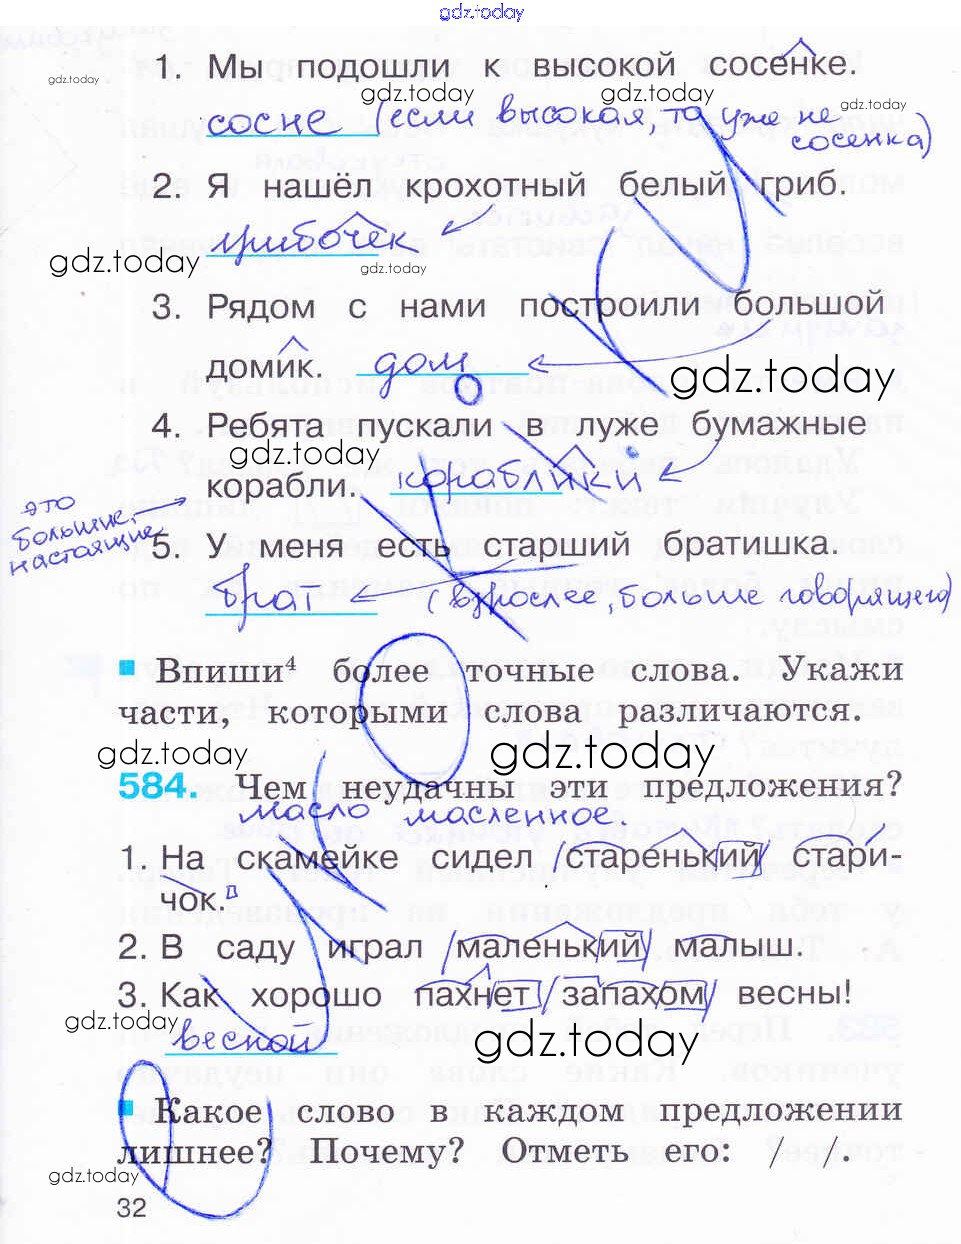 gdz.today
1. Мы подошли к высокой сосенке.
gdz.today
gdz.today gdz.today gdz.today
сосне (если высокая, то уже не сосенка)
2. Я нашёл крохотный белый гриб.
грибочек
gdz.today gdz.today
3. Рядом с нами построили большой
домик. дом
gdz.today
4. Ребята пускали в луже бумажные
gdz.today
корабли. кораблики
это
большие,
настоящие
5. У меня есть старший братишка.
брат (взрослее, больше говорящего)
Впиши⁴ более точные слова. Укажи
части, которыми слова различаются.
gdz.today gdz.today
584. Чем неудачны эти предложения?
масло масленное.
1. На скамейке сидел /старенький/ стари-
чок.
2. В саду играл /маленький/ малыш.
3. Как хорошо пахнет /запахом/ весны!
gdz.today
весной
gdz.today
Какое слово в каждом предложении
лишнее? Почему? Отметь его: / /.
gdz.today
32